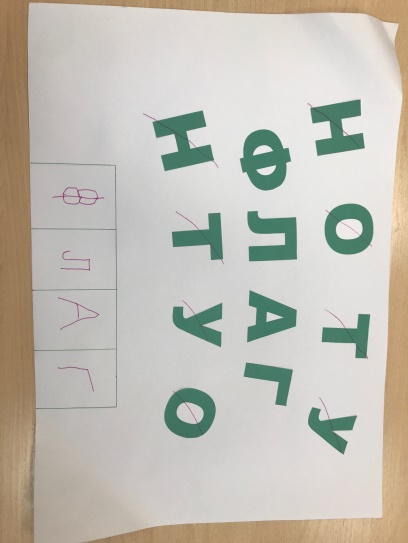 Н О Т У
Ф Л А Г
Н Т У О
Ф Л А Г